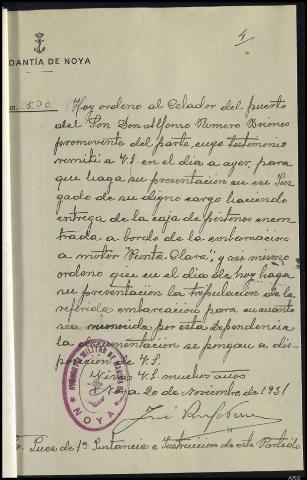 4
DANTÍA DE NOYA
m. 530
Hoy ordeno al Celador del puerto
del Son Don Alfonso Romero Briones
promovente del parte, cuyo testimonio
remití a V.S. en el día de ayer, para
que haga su presentación en ese Juz-
gado de su digno cargo haciendo
entrega de la caja de pistones encon-
trada a bordo de la embarcación
a motor "Punta Clara", y así mismo
ordeno que en el día de hoy haga
su presentación la tripulación de la
referida embarcación para en cuanto
sea reconocida por esta dependencia
la documentación se pongan a dis-
posición de V.S.
V.S. muchos años
Noya 20 de Noviembre de 1931
José
Juez de 1ª Instancia e Instrucción de este Partido
MILITAR DE MARINA
NOYA